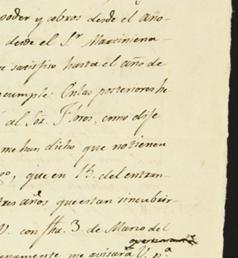 poder y cobros desde el año
desde el Sr. Maximiena
satisfizo hasta el año de
cumple. En las posteriores he
al Sor. Flores, como dije
me han dicho que no tienen
que, en 15. del entram-
tres años que estan sin cubrir
V. con fha. 3. de Marzo del
me avisará V. pa.